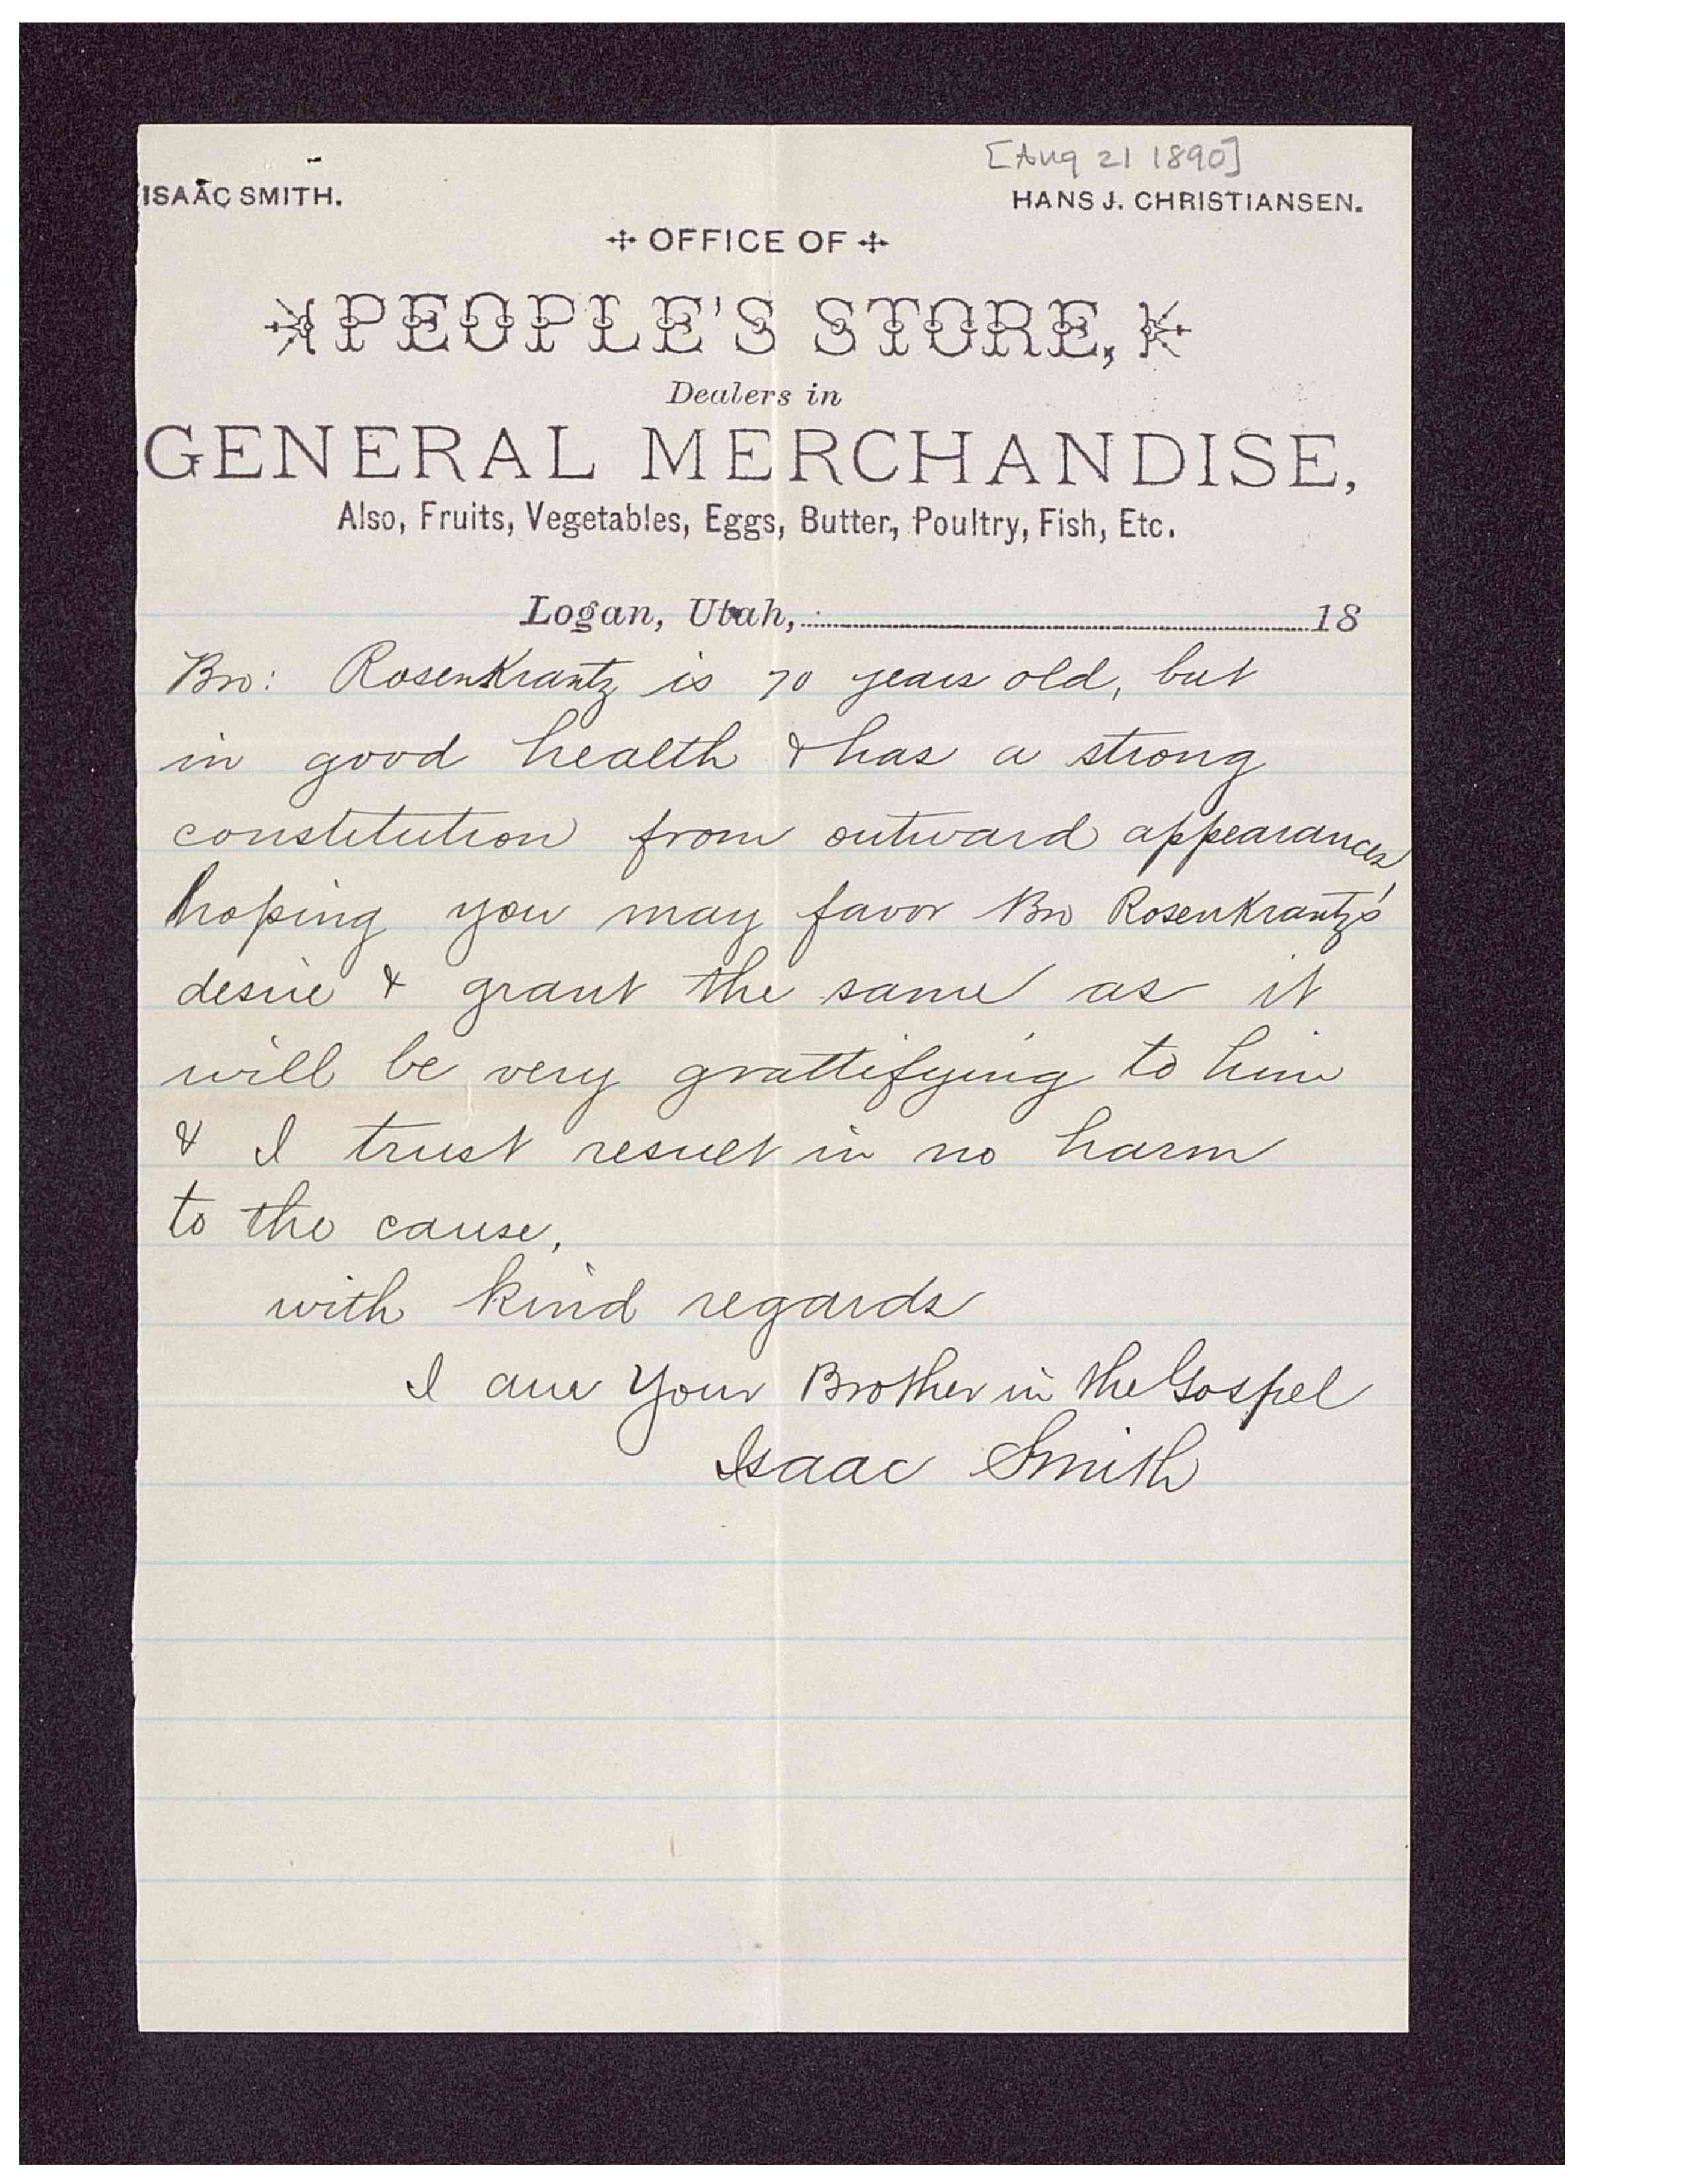 [Aug 21 1890]
ISAAC SMITH. HANS J. CHRISTIANSEN.
OFFICE OF
PEOPLE'S STORE,
Dealers in
GENERAL MERCHANDISE,
Also, Fruits, Vegetables, Eggs, Butter, Poultry, Fish, Etc.
Logan, Utah, 18
Bro: RosenKrantz is 70 years old, but
in good health & has a strong
constitution from outward appearances
hoping you may favor Bro RosenKrantz's
desire & grant the same as it
will be very grattifying to him
& I trust result in no harm
to the cause,
with kind regards
I am Your Brother in the Gospel
Isaac Smith